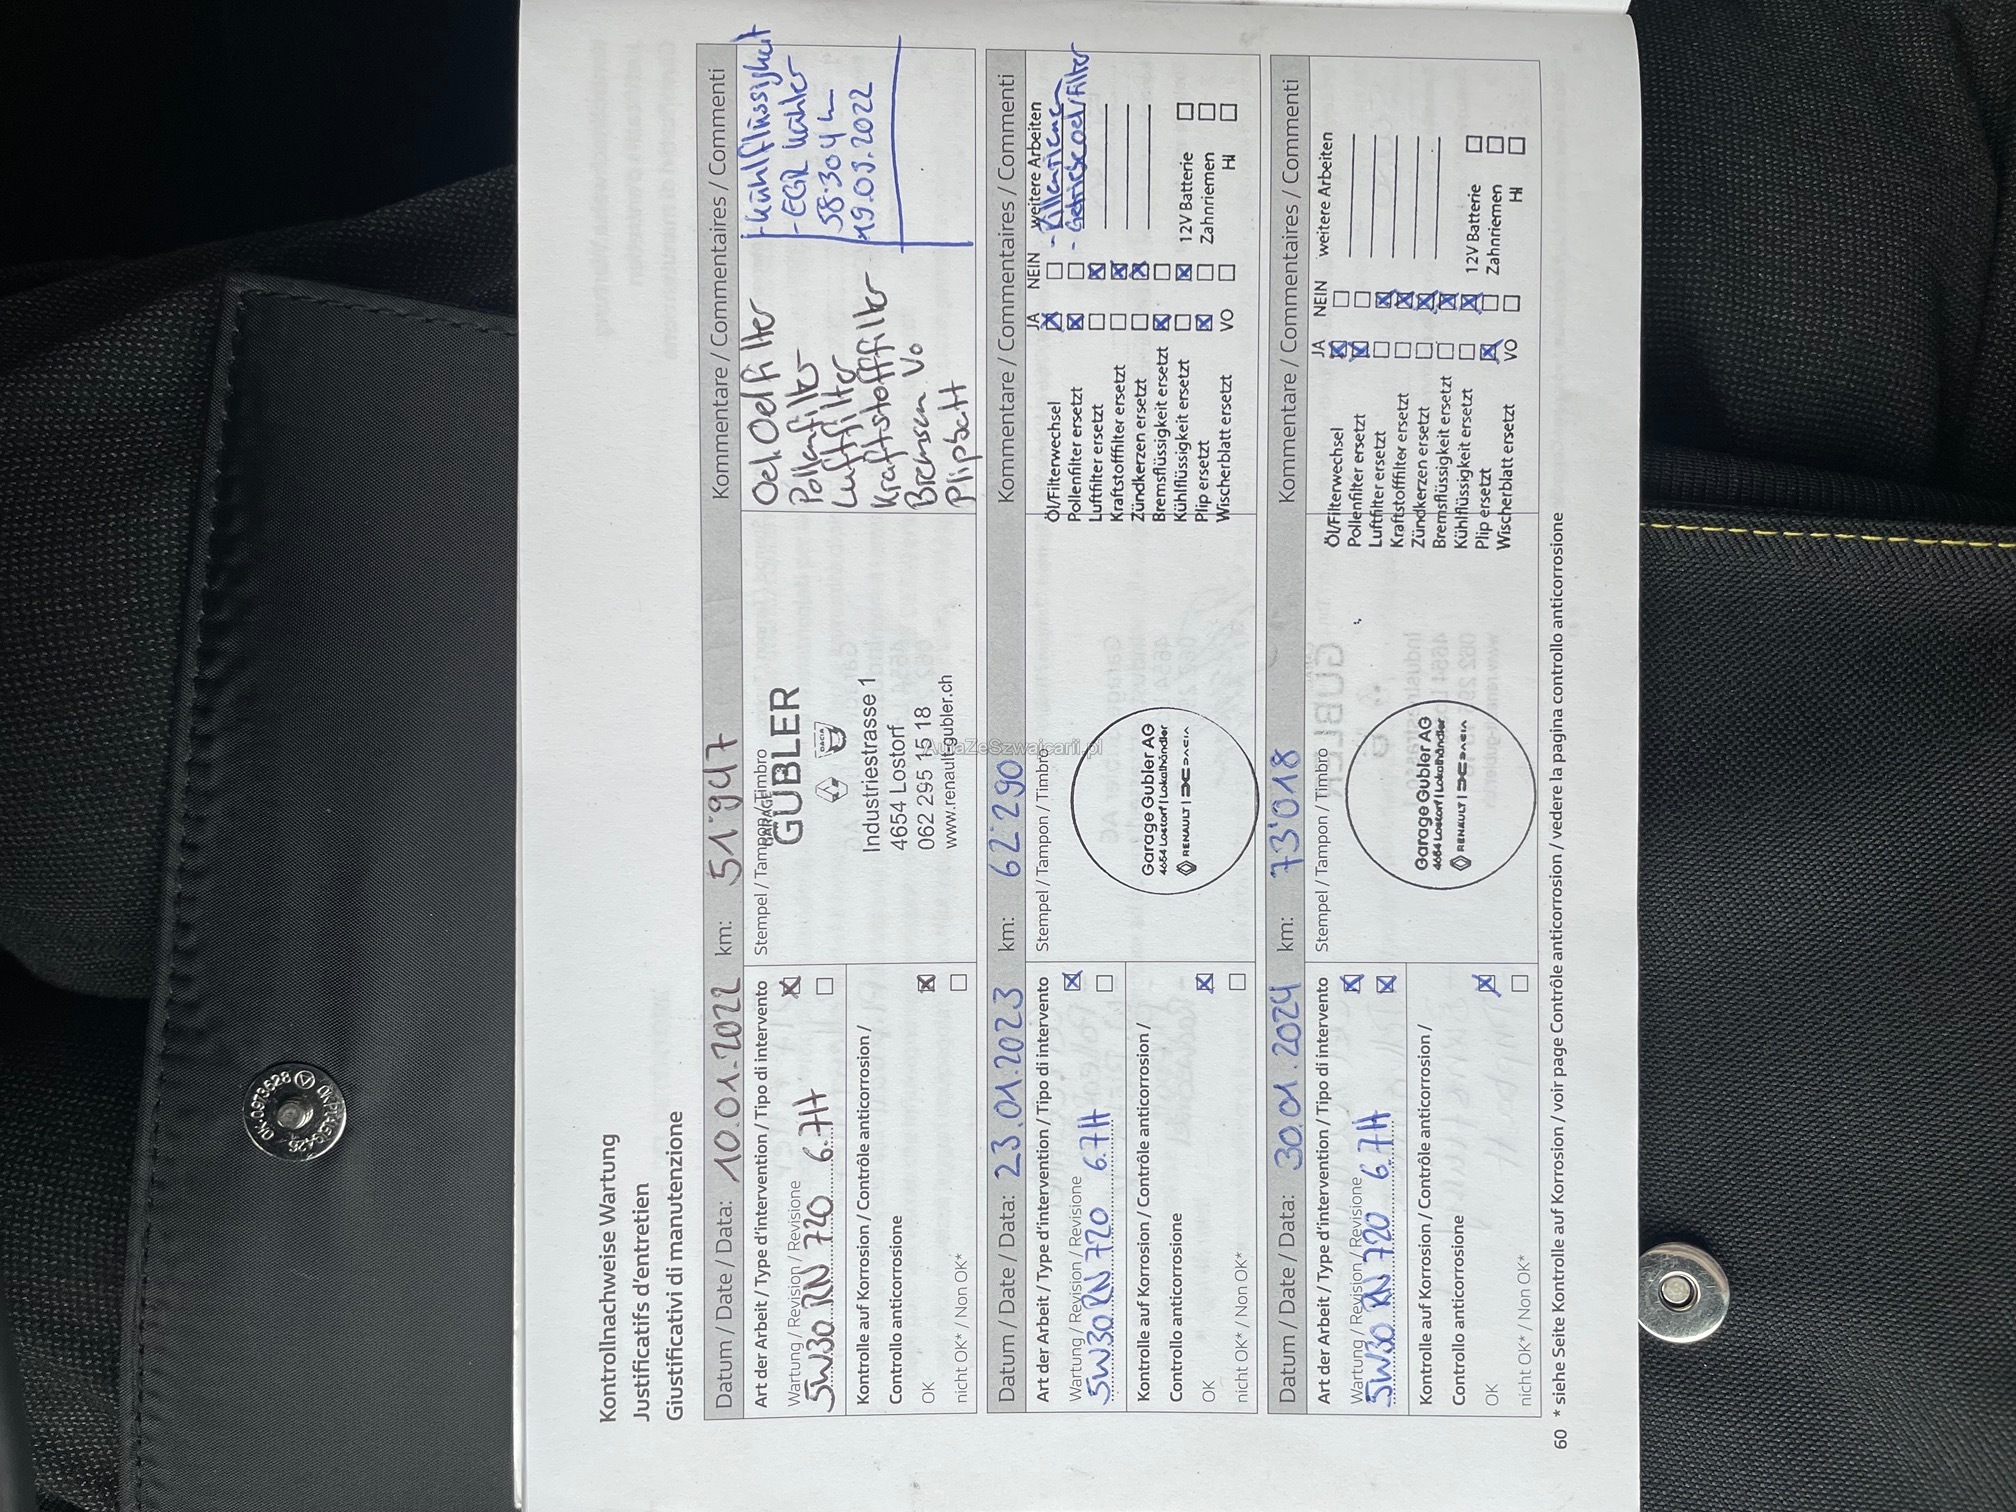 Kontrollnachweise Wartung
Justificatifs d'entretien
Giustificativi di manutenzione
Datum / Date / Data: 10.01.2022 km: 51'947 Kommentare / Commentaires / Commenti
Art der Arbeit / Type d'intervention / Tipo di intervento
Wartung / Revision / Revisione
5W30 RN 720 6.7H
Kontrolle auf Korrosion / Contrôle anticorrosion /
Controllo anticorrosione
OK
nicht OK* / Non OK*
Stempel / Tampon / Timbro
GARAGE
GUBLER
DACIA
Industriestrasse 1
4654 Lostorf
062 295 15 18
www.renault-gubler.ch
Oel. Oelfilter
Pollenfilter
Luftfilter
Kraftstofffilter
Bremsen Vo
Plipbatt
- Kühlflüssigkeit
- EGR Kühler
58'304 km
19.09.2022
Datum / Date / Data: 23.01.2023 km: 62'290 Kommentare / Commentaires / Commenti
Art der Arbeit / Type d'intervention / Tipo di intervento
Wartung / Revision / Revisione
5W30 RN 720 6.7H
Kontrolle auf Korrosion / Contrôle anticorrosion /
Controllo anticorrosione
OK
nicht OK* / Non OK*
Stempel / Tampon / Timbro
Garage Gubler AG
4654 Lostorf | Lokalhändler
RENAULT | DACIA
JA NEIN weitere Arbeiten
Öl/Filterwechsel
Pollenfilter ersetzt - Getriebeoel/Filter
Luftfilter ersetzt
Kraftstofffilter ersetzt
Zündkerzen ersetzt
Bremsflüssigkeit ersetzt
Kühlflüssigkeit ersetzt 12V Batterie
Plip ersetzt Zahnriemen
Wischerblatt ersetzt VO HI
Datum / Date / Data: 30.01.2024 km: 73'018 Kommentare / Commentaires / Commenti
Art der Arbeit / Type d'intervention / Tipo di intervento
Wartung / Revision / Revisione
5W30 RN 720 6.7H
Kontrolle auf Korrosion / Contrôle anticorrosion /
Controllo anticorrosione
OK
nicht OK* / Non OK*
Stempel / Tampon / Timbro
Garage Gubler AG
4654 Lostorf | Lokalhändler
RENAULT | DACIA
JA NEIN weitere Arbeiten
Öl/Filterwechsel
Pollenfilter ersetzt
Luftfilter ersetzt
Kraftstofffilter ersetzt
Zündkerzen ersetzt
Bremsflüssigkeit ersetzt
Kühlflüssigkeit ersetzt 12V Batterie
Plip ersetzt Zahnriemen
Wischerblatt ersetzt VO HI
60 * siehe Seite Kontrolle auf Korrosion / voir page Contrôle anticorrosion / vedere la pagina controllo anticorrosione
AutaZeSzwajcarii.pl